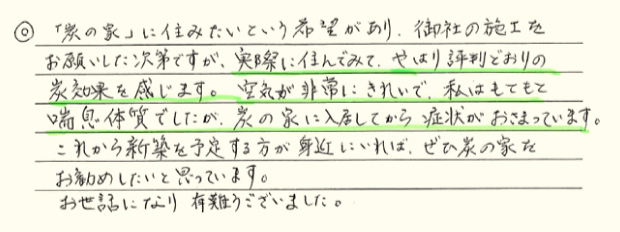 ◎ 「炭の家」に住みたいという希望があり、御社の施工を
お願いした次第ですが、実際に住んでみて、やはり評判どおりの
炭効果を感じます。空気が非常にきれいで、私はもてもて
喘息体質でしたが、炭の家に入居してから症状がおさまっています。
これから新築を予定する方が身近にいれば、ぜひ炭の家を
お勧めしたいと思っています。
お世話になり有難うございました。